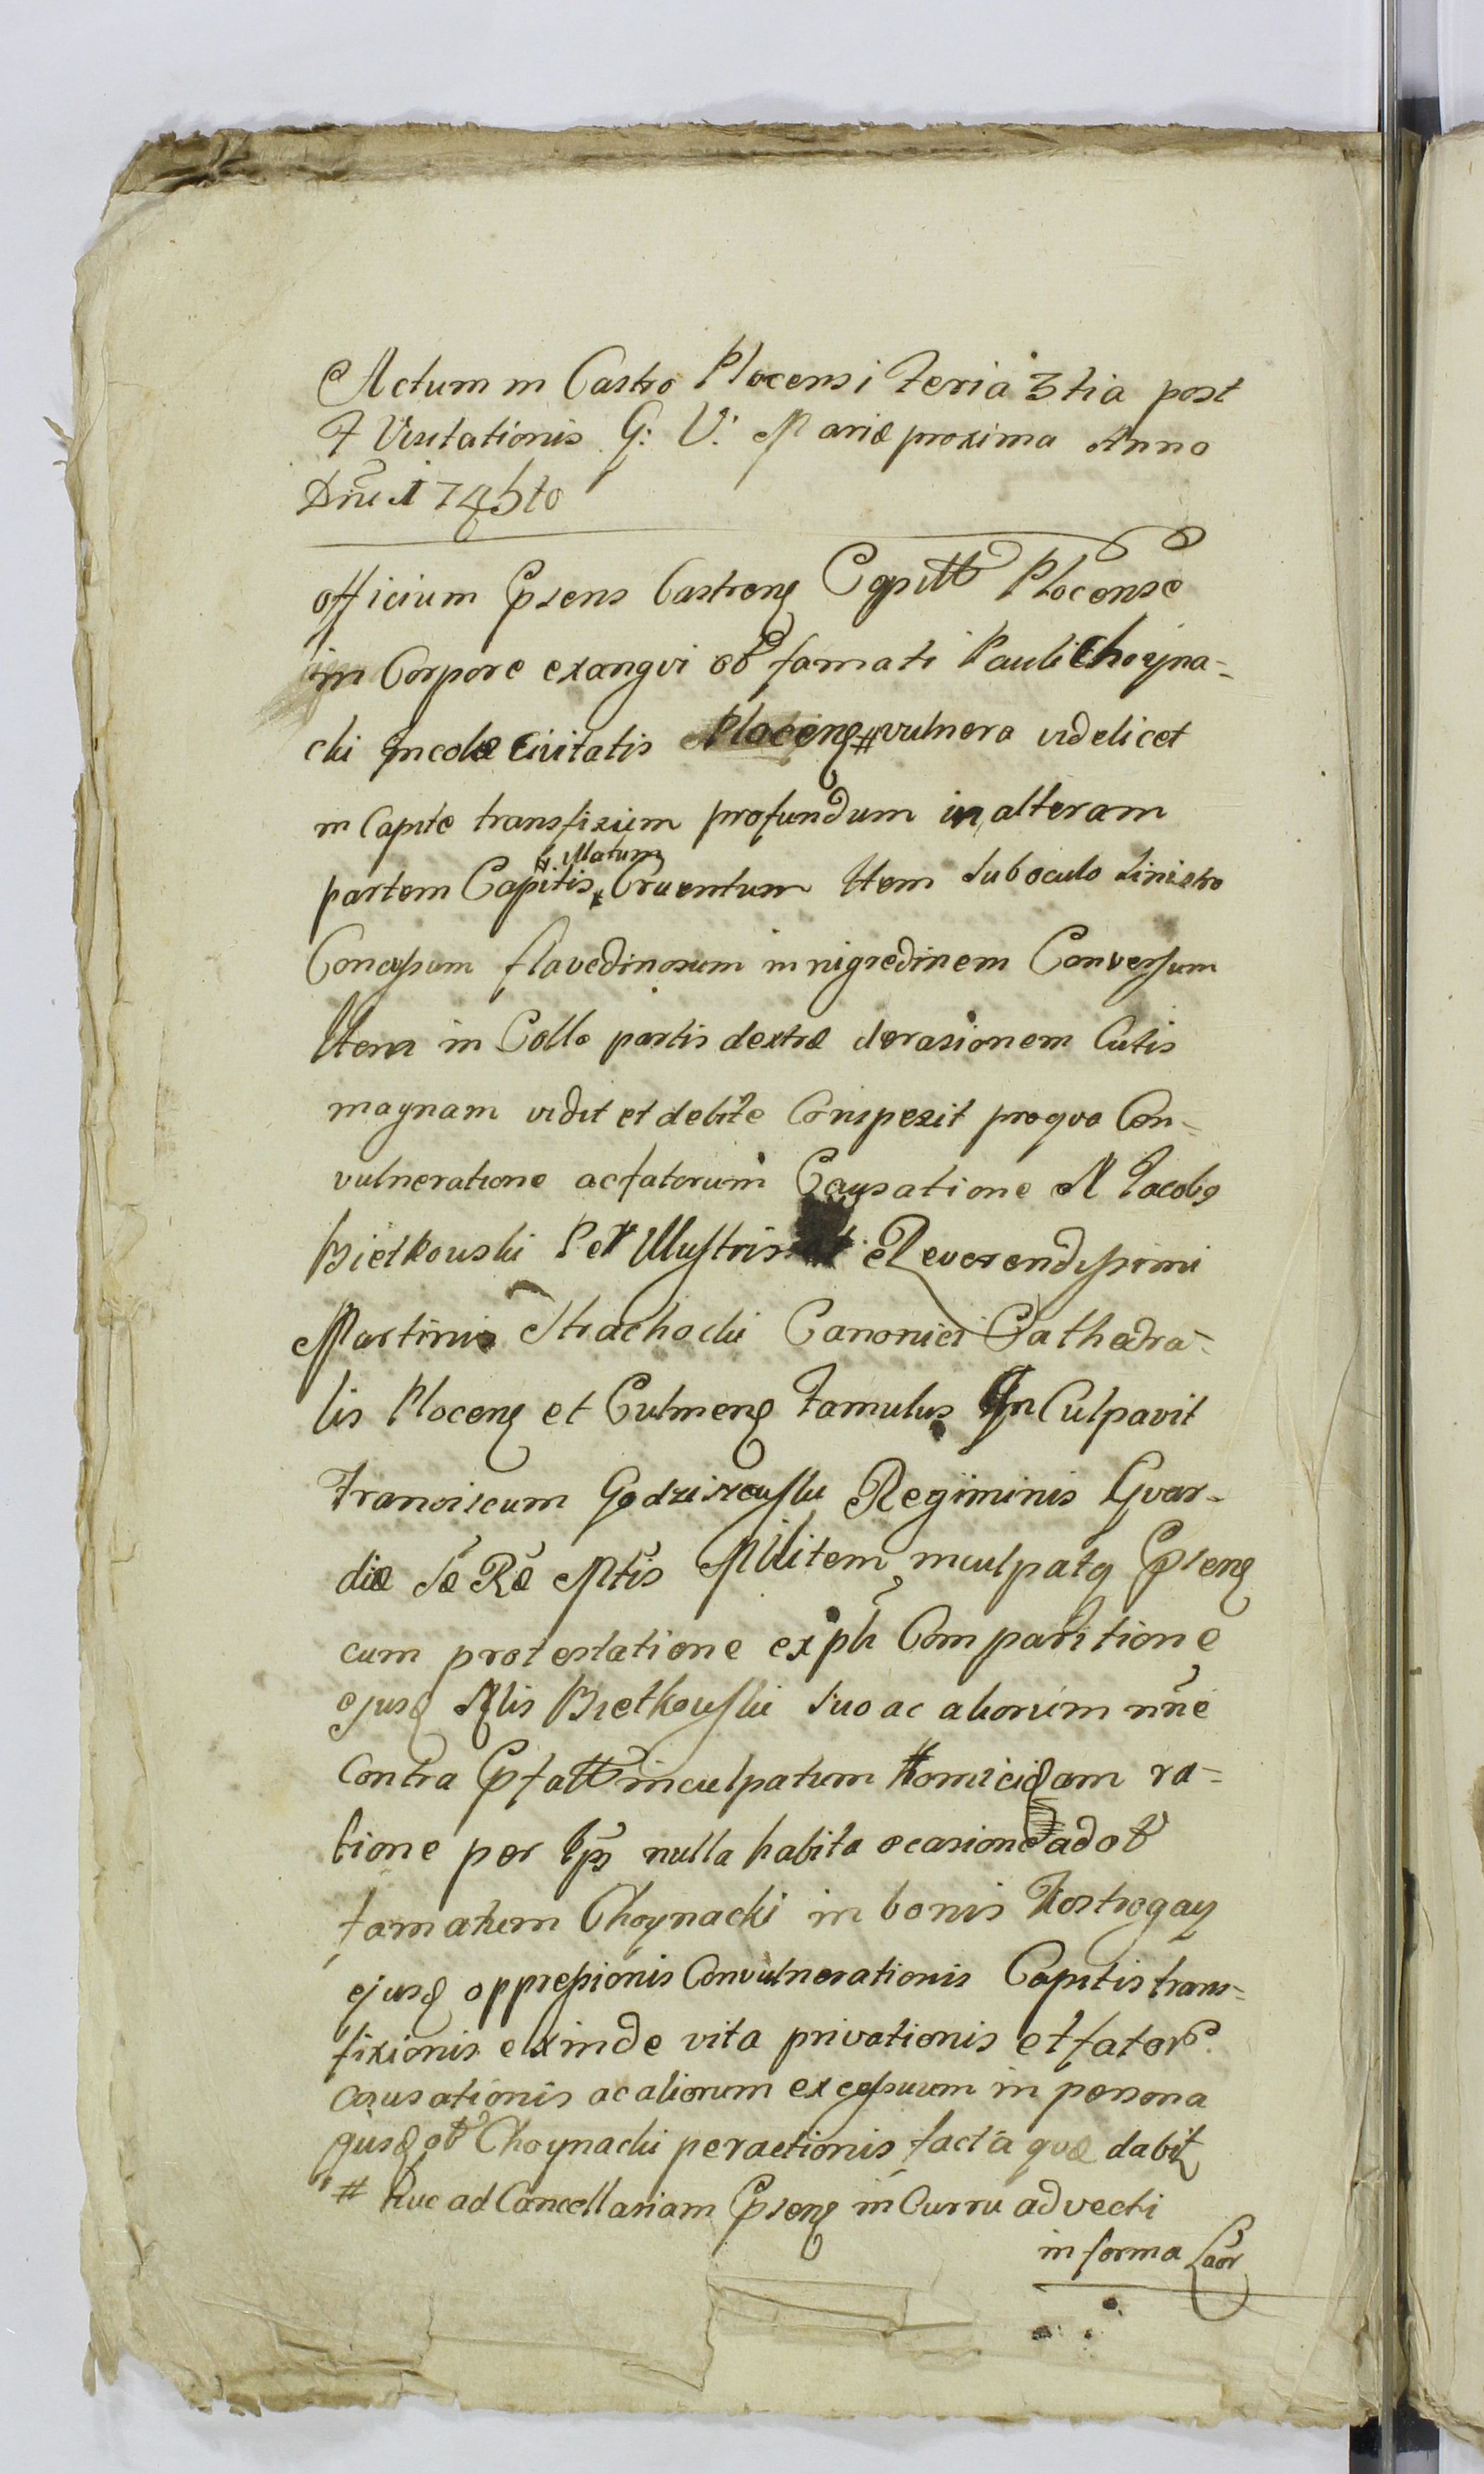 Actum in Castro Plocensi Feria 3tia post
F Visitationis G: V: Mariæ proxima Anno
Dñi 1745to
officium Pñsens Castrens Capitt Plocense
in Corpore exangvi ob famati Pauli Choyna-
cki Incolæ Civitatis Plocens # vulnera videlicet
in Capite transfixum profundum in alteram
partem Capitis x illatum Cruentum Item sub oculo sinistro
Concussum flavedinosum in nigredinem Conversum
Item in Collo partis dextræ derasionem Cutis
magnam vidit et debite Conspexit pro qva Con-
vulneratione ac fatorum Causatione N Jacobg
Bietkouski Per Illustris Reverendissimi
Martini Strachocki Canonici Cathedra-
lis Plocens et Culmens Famulus In Culpavit
Franciscum Godziszeuski Regiminis Gvar-
diæ Sæ Ræ Mtis Militem inculpatq Pñsens
cum protestatione ex ph Comparitione
ejusd Nlis Bietkouski suo ac aliorum nñe
Contra Pfatt inculpatum Homicidam ra-
tione per Ips nulla habita ocasione ad ob
famatum Choynacki in bonis Kostrogay
ejusd oppressionis Convulnerationis Capitis trans-
fixionis exinde vita privationis et fator
causationis ac aliorum excessuum in persona
ejusd ob Choynacki peractionis facta qvæ dabit
# huc ad Cancellariam Pñsens in Curru advecti
in forma Laor